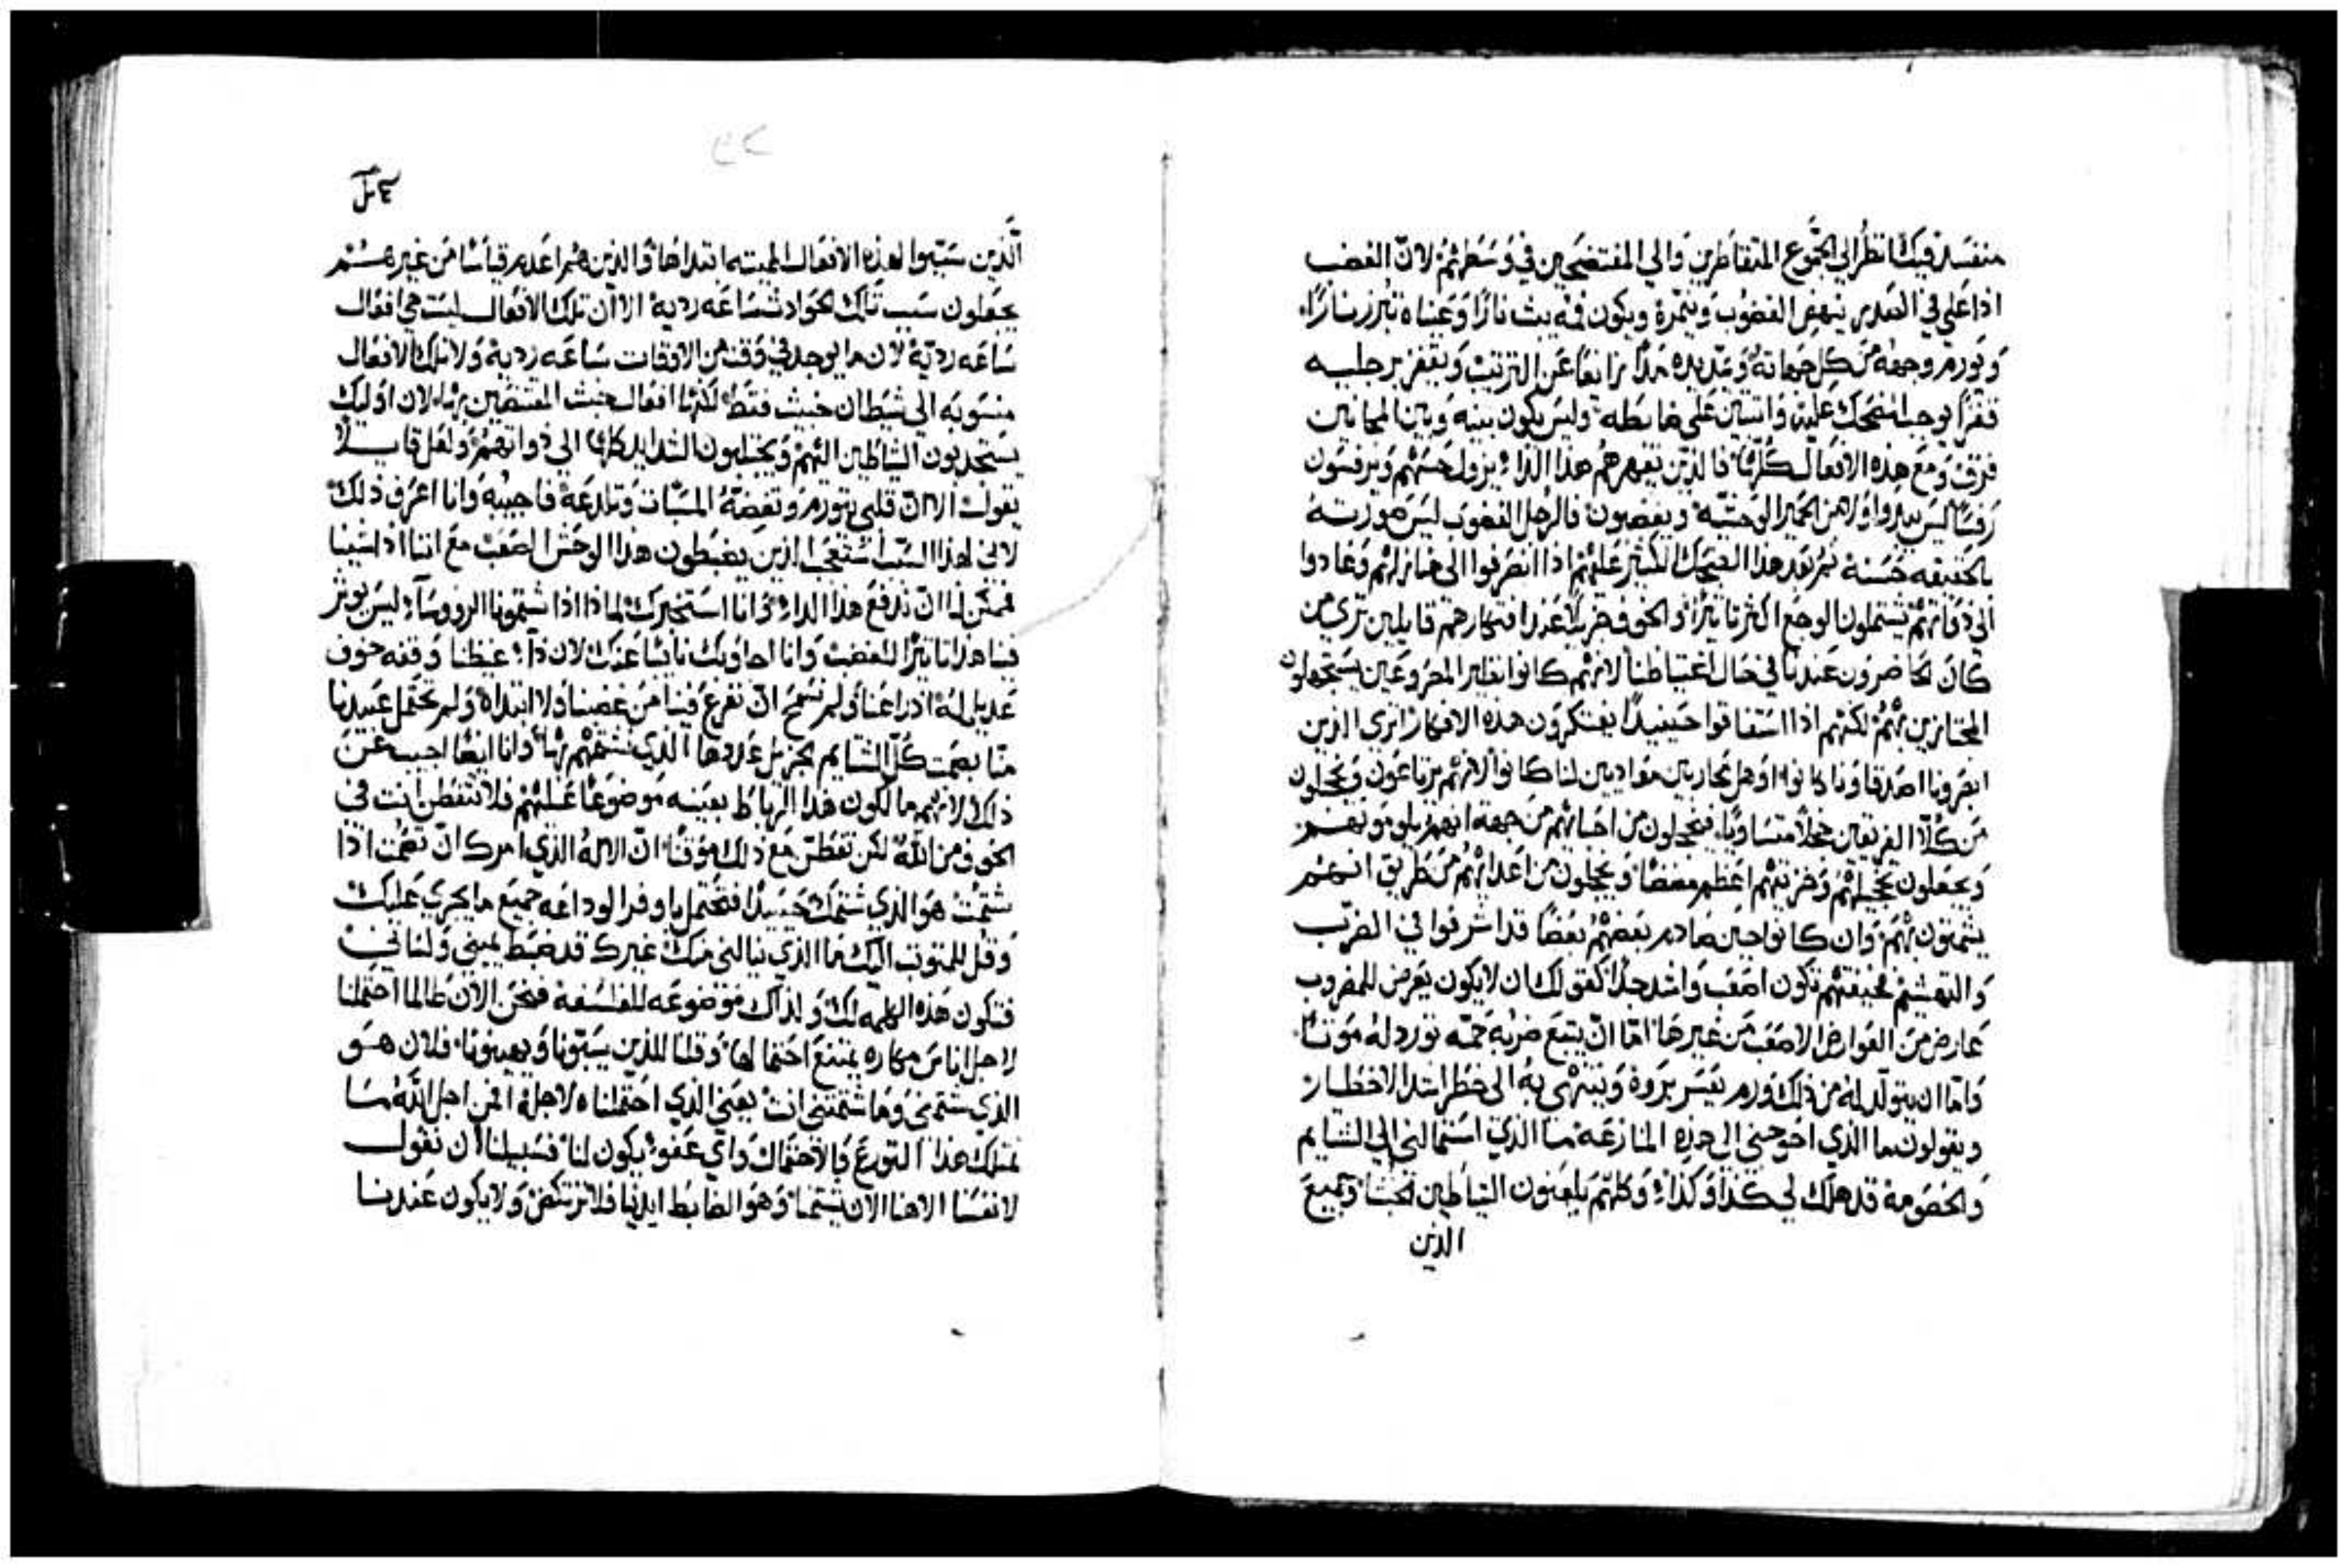 منفسدة فيك انظر الي الجموع المتقاطرين والي المفتضحين في وسطهم لان الغضب
اذا غلي في الصدر ينهض الغضوب وينمره ويكون فمه يبث نارًا وعيناه تبرز نارًا
ويورم وجهه من كل جهاته ويمد يده مدًا زايغًا عن الترتيب ويقفز برجليه
قفزًا يوجب الضحك عليه وليس يكون بينه وبين المجانين
فرق ومع هذه الافعال كلها فالذين يقهرهم هذا الداء يزول حسنهم ويرفسون
رفسًا ليس بدوا من الحمير الوحشيه ويعضون فالرجل الغضوب ليس صورته
بالحقيقه حسنة ثم بعد هذا الضحك الكثير عليهم اذا انصرفوا الي منازلهم وعادوا
الي ذواتهم يشتملون الوجع اكثر تاثيرًا والخوف جزيلًا عند افتكارهم قايلين تري من
كان الحاضرون عندنا في حال اغتياظنا لانهم كانوا نظير المصروعين يستجهلون
المجتازين بهم لكنهم اذا استفاقوا حينيذ يفتكرون هذه الافكار اتري الذين
ابصرونا اصدقاونا كانوا او هل محاربين معاديين لنا كانوا لانهم يرتاعون ويخجلون
من كلا الفريقين خجلًا متساويًا فيخجلون من احبائهم من جهة انهم يلومونهم
ويجعلون تخجيلهم وخزيتهم اعظم مضضًا ويخجلون من اعدائهم من طريق انهم
يشمتون بهم وان كانوا حين صادم بعضهم بعضًا قد اسرفوا في الضرب
والتهشيم فخيفتهم تكون اصعب واشد جدا كقولك ان لا يكون يعرض للمضروب
عارض من العوارض الاصعب من غيرها اما ان يتبع ضربه حمه تورد له موتًا
واما ان يتولد له من ذلك ورم يعسر بروه وينتهي به الي خطر ابتدا الاخطار
ويقولون ما الذي احوجني الي هذه المنازعه ما الذي استمالني الي الشتايم
والخصومة قد هلك لي كذا وكذا وكلهم يلعنون الشياطين وجميع
الذين
الذين سببوا لهذه الافعال المميته ابتداها والذين هم اعدم قياسًا من غيرهم
يجعلون سبب تلك الحوادث ساعه رديه الا ان تلك الافعال ليست هي افعال
ساعه رديه لان ما يوجد في وقت من الاوقات ساعه رديه ولا تلك الافعال
منسوبه الي شيطان خبيث فقط لكنها افعال خبث المغتضبين بها لان اوليك
يستجذبون الشياطين اليهم ويجتلبون الشدايد كلها الي ذواتهم ولعل قايلًا
يقول الا ان قلبي يتورم وتعضه المسبات وتلدغه فاجيبه وانا اعرف ذلك
لاني لهذا السبب استعجب الذين يضبطون هذا الوحش الصعب مع اننا اذا شينا
فممكن لنا ان ندفع هذا الداء وانا استخبرك لماذا اذا شتمونا الروساء ليس يوثر
فينا هذا تاثير الغضب وانا اجاوبك نايبًا عنك لان داء غيظنا وقفه خوف
عديل له اذ راعنا ولم تسمح ان نفرغ فينا من غضبنا ولا ابتداه ولم يحتمل عبيدنا
منا بصمت كل الشتايم بجزيل عددها الذي نشتمهم بها وانا ايضًا اجيب عن
ذلك لانهم مالكون هذا الرباط بعينه موضوعًا عليهم فلا تتفطن انت في
الخوف من الله لكن تفطن مع ذلك موقنًا ان الاله الذي امرك ان تصمت اذا
شتمت هو الذي شتمك حينيذ فتحتمل باوفر الوداعه جميع ما يجري عليك
وقل للمتوثب اليك ما الذي ينالني منك غيرك قد ضبط يميني ولساني
فتكون هذه الكلمه لك ولذاك موضوعه للفلسفة فنحن الان طالما احتملنا
لاجل اناس مكاره يمتنع احتمالها وقلنا للذين يسبونا ويهينونا فلان هو
الذي شتمني وما شتمتني انت يعني الذي احتملناه لاجله افمن اجل الله ما
نمتلك هذا التورع والاحتمال واي عفو يكون لنا فسبيلنا ان نقول
لانفسنا الاهنا الان يشتمنا وهو الضابط ايدينا فلا نرتكض ولا يكون عندنا